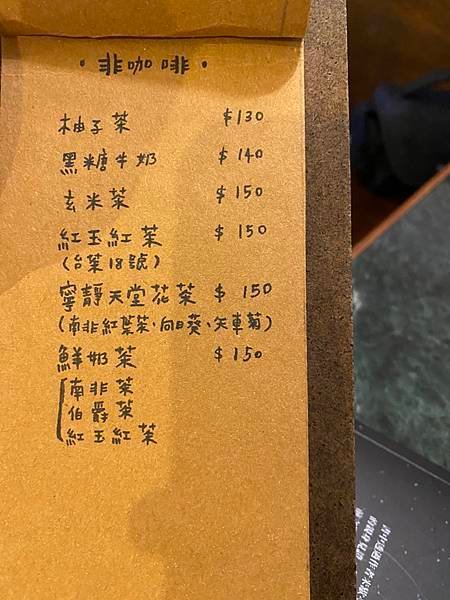 ·非咖啡·
柚子茶 $130
黑糖牛奶 $140
玄米茶 $150
紅玉紅茶 $150
(台茶18號)
寧靜天堂花茶 $150
(南非紅葉茶、向日葵、矢車菊)
鮮奶茶 $150
南非茶
伯爵茶
紅玉紅茶